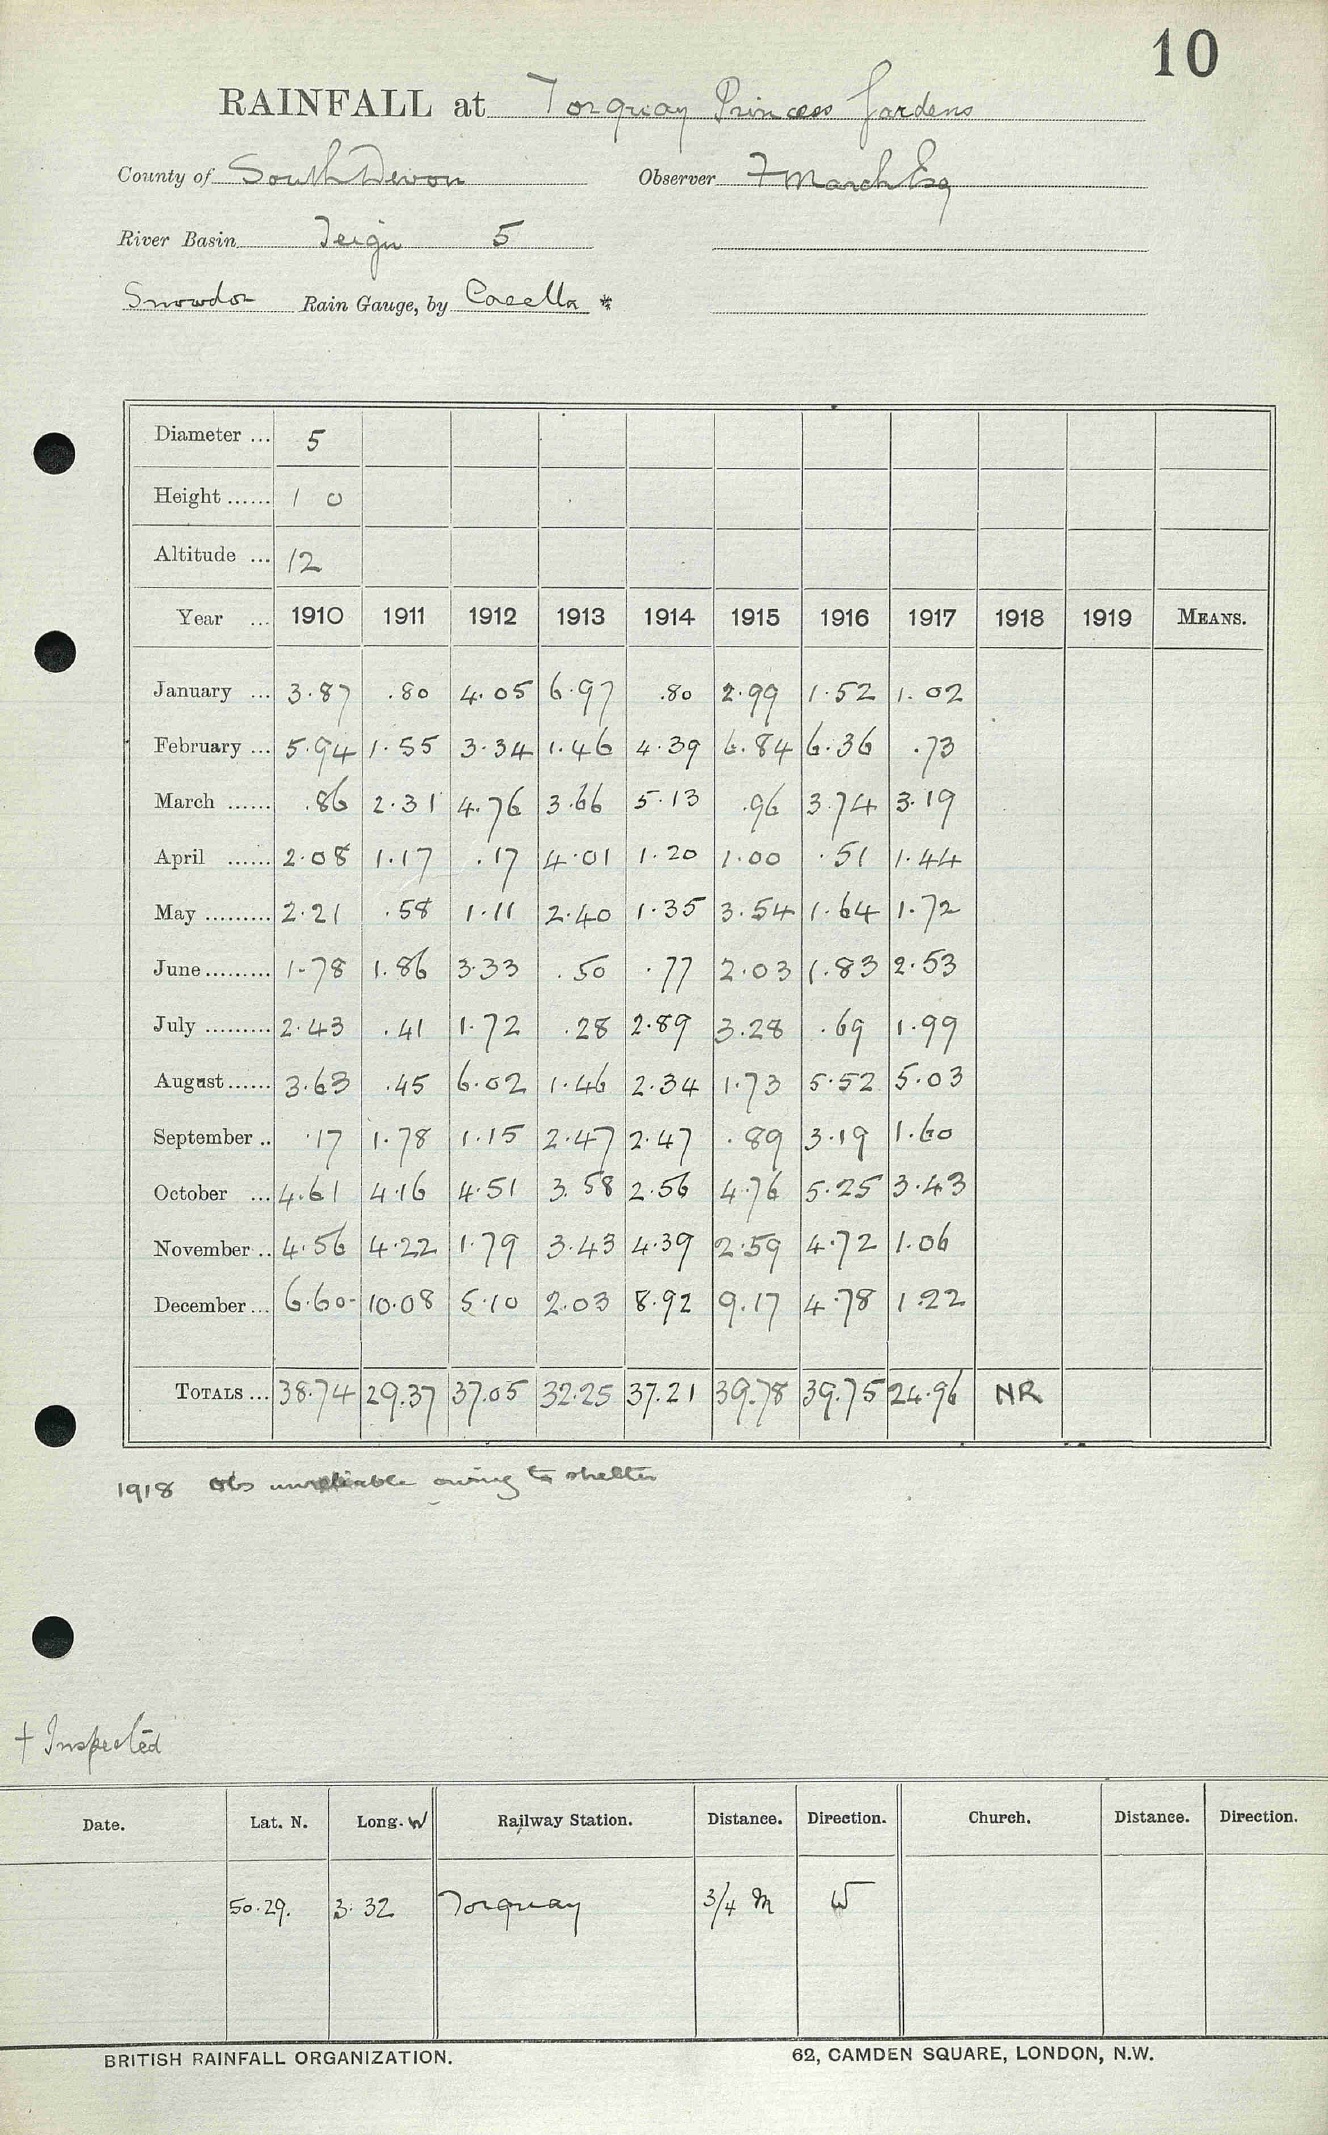 10
RAINFALL at Torquay Princess Gardens
County of South Devon Observer F March Esq
River Basin Teign 5
Snowdon Rain Gauge, by Casella *
Diameter ... 5
Height ...... 1 0
Altitude ... 12
Year ... 1910 1911 1912 1913 1914 1915 1916 1917 1918 1919 MEANS.
January ... 3.87 .80 4.05 6.97 .80 2.99 1.52 1.02
February ... 5.94 1.55 3.34 1.46 4.39 6.84 6.36 .73
March ...... .86 2.31 4.76 3.66 5.13 .96 3.74 3.19
April ...... 2.08 1.17 .17 4.01 1.20 1.00 .51 1.44
May ......... 2.21 .58 1.11 2.40 1.35 3.54 1.64 1.72
June ......... 1.78 1.86 3.33 .50 .77 2.03 1.83 2.53
July ......... 2.43 .41 1.72 .28 2.89 3.28 .69 1.99
August ...... 3.63 .45 6.02 1.46 2.34 1.73 5.52 5.03
September .. .17 1.78 1.15 2.47 2.47 .89 3.19 1.60
October ... 4.61 4.16 4.51 3.58 2.56 4.76 5.25 3.43
November .. 4.56 4.22 1.79 3.43 4.39 2.59 4.72 1.06
December ... 6.60 10.08 5.10 2.03 8.92 9.17 4.78 1.22
TOTALS ... 38.74 29.37 37.05 32.25 37.21 39.78 39.75 24.96 NR
1918 Obs unreliable owing to shelter
† Inspected
Date. Lat. N. Long. W Railway Station. Distance. Direction. Church. Distance. Direction.
50.29. 3.32 Torquay 3/4 m W
BRITISH RAINFALL ORGANIZATION. 62, CAMDEN SQUARE, LONDON, N.W.